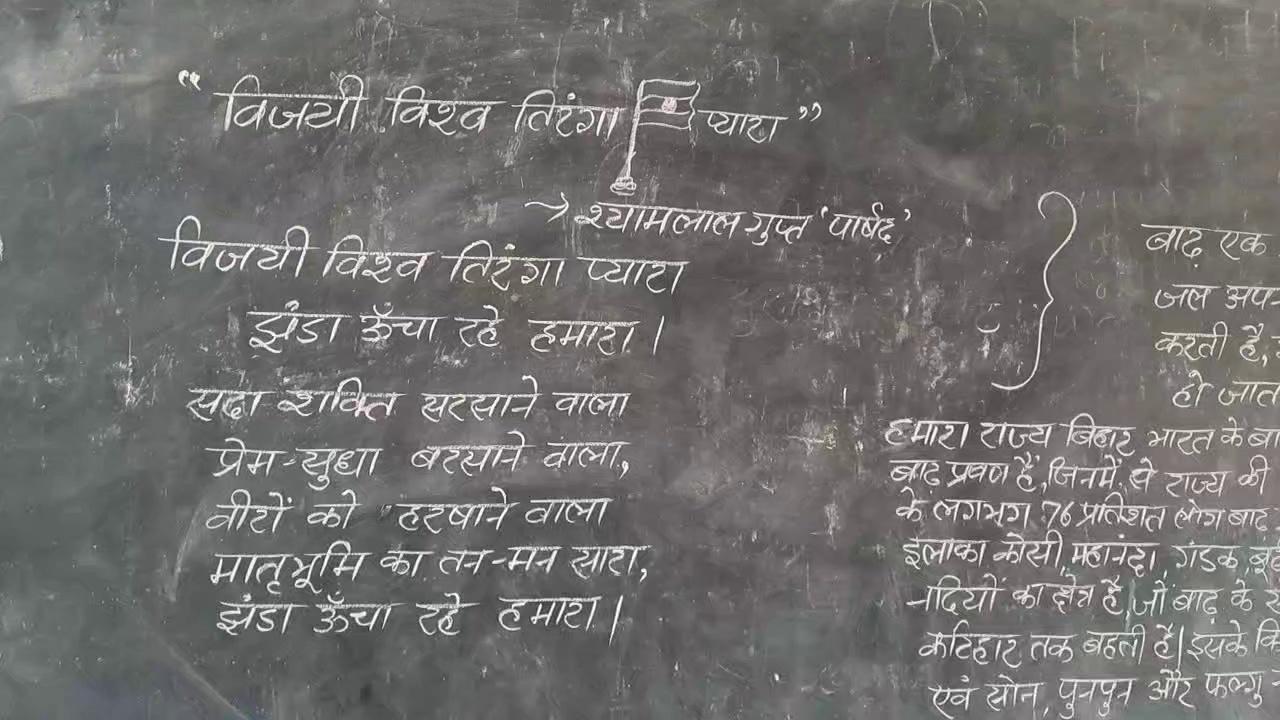 “विजयी विश्व तिरंगा प्यारा”
→ श्यामलाल गुप्त ‘पार्षद’
विजयी विश्व तिरंगा प्यारा
झंडा ऊँचा रहे हमारा।
सदा शक्ति सरसाने वाला
प्रेम-सुधा बरसाने वाला,
वीरों को हरषाने वाला
मातृभूमि का तन-मन सारा,
झंडा ऊँचा रहे हमारा।
बाढ़ एक
जल अप
करती है,
हो जात
हमारा राज्य बिहार भारत के बा
बाढ़ प्रवण है, जिनमें से राज्य की
के लगभग 76 प्रतिशत लोग बाढ़
इलाका कोसी, महानंदा, गंडक,
नदियों का क्षेत्र है, जो बाढ़ के
कटिहार तक बहती है। इसके
एवं सोन, पुनपुन और फल्गु